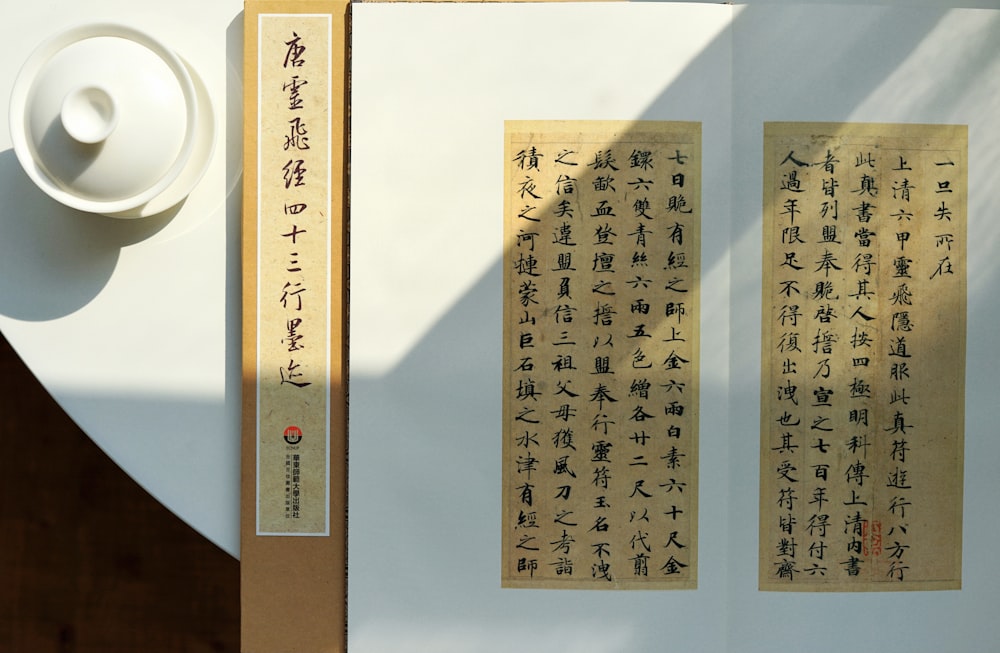 唐靈飛經四十三行墨迹
華東師範大學出版社
一旦失所在
上清六甲靈飛隱道服此真符遊行八方行
此真書當得其人按四極明科傳上清內書
者皆列盟奉貺啓擔乃宣之七百年得付六
人過年限足不得復出洩也其受符皆對齋
七日貺有經之師上金六兩白素六十尺金
鐶六雙青絲六兩五色繒各廿二尺以代剪
髮歃血登壇之擔以盟奉行靈符玉名不洩
之信矣違盟負信三祖父母獲風刀之考詣
積夜之河摙蒙山巨石填之水津有經之師